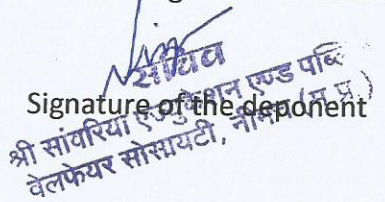 सचिव
Signature of the deponent
श्री सांवरिया एज्युकेशन एण्ड पब्लि
वेलफेयर सोसायटी, नीमच (म.प्र.)